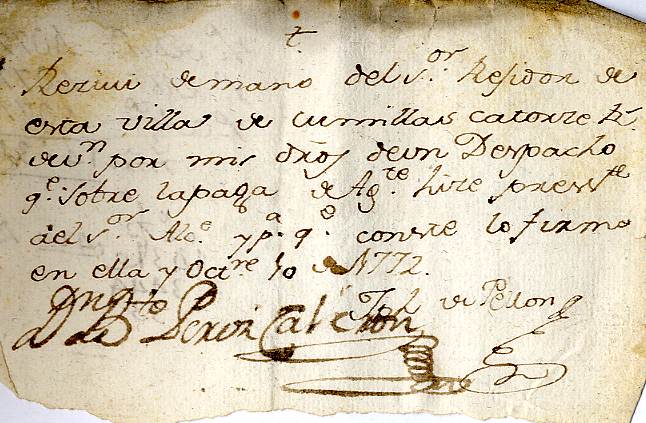 t
Reziui de mano del s.or Residor de
esta villa de cumillas catorze R.s
de v.n por mis dr̃os de un Despacho
q.e sobre la paga de Ag.te hize press.te
del s.or Alc.e y p.a q.e conste lo firmo
en ella y Oct.re 10 de 1772.
de Pellon
Perez Calderon